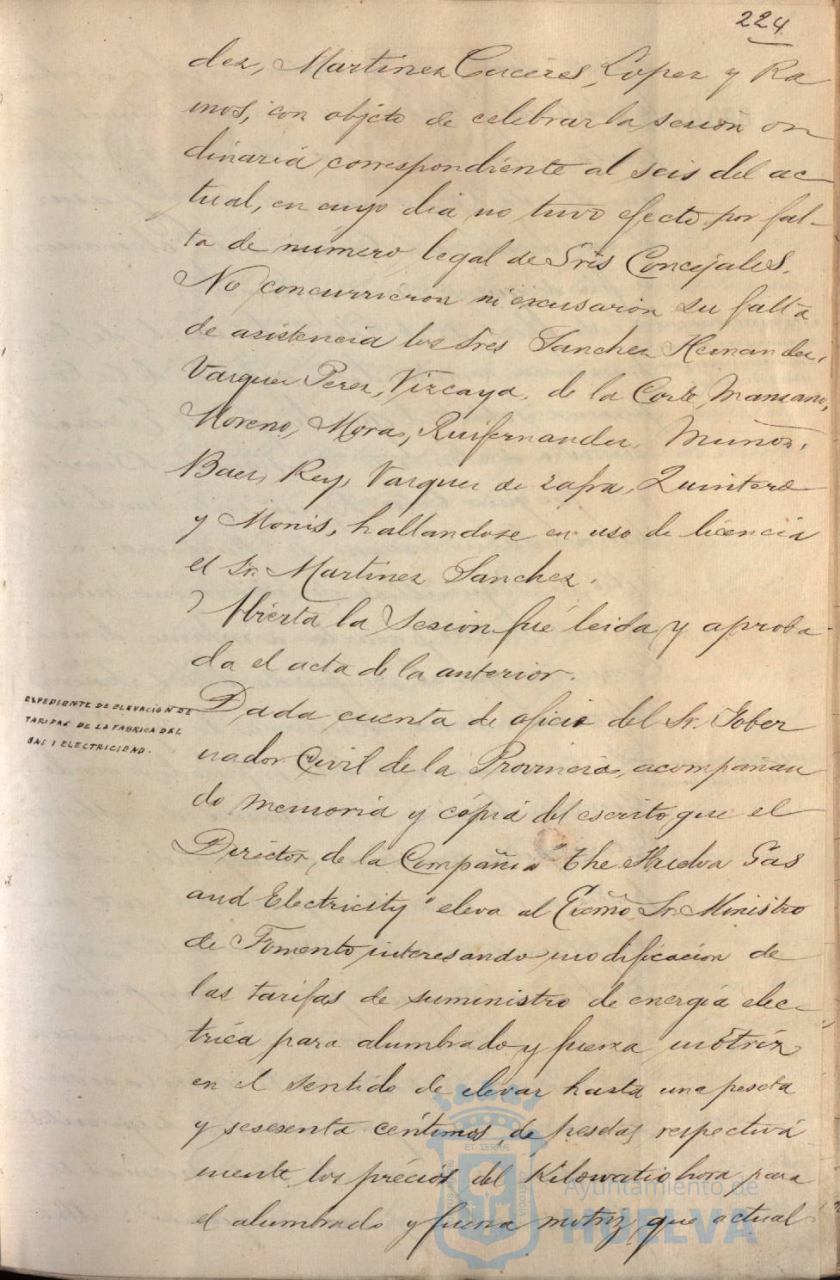 224
dez, Martinez Caceres, Lopez y Ra
mos, con objeto de celebrar la sesión or
dinaria correspondiente al seis del ac-
tual, en cuyo dia no tuvo efecto por fal-
ta de número legal de Sres Concejales.
No concurrieron ni excusaron su falta
de asistencia los Sres Sanchez Hernandez,
Vazquez Perez, Vizcaya, de la Corte, Manzano,
Moreno, Mora, Ruifernandez, Muñoz,
Baez, Rey, Vazquez de Zafra, Quintero
y Monis, hallandose en uso de licencia
el Sr. Martinez Sanchez.
Abierta la Sesion fué leida y aproba-
da el acta de la anterior.
EXPEDIENTE DE ELEVACIÓN DE
TARIFAS DE LA FABRICA DEL
GAS Y ELECTRICIDAD.
Dada cuenta de oficio del Sr. Gober
nador Civil de la Provincia, acompañan
do memoria y cópia del escrito que el
Director, de la Compañia "The Huelva Gas
and Electricity" eleva al Excmo Sr. Ministro
de Fomento interesando modificacion de
las tarifas de suministro de energía elec-
trica para alumbrado y fuerza motriz
en el sentido de elevar hasta una peseta
y sesesenta centimos, de pesetas respectiva
mente los précios del Kilowatio hora para
el alumbrado y fuerza motriz que actual
Ayuntamiento de
HUELVA